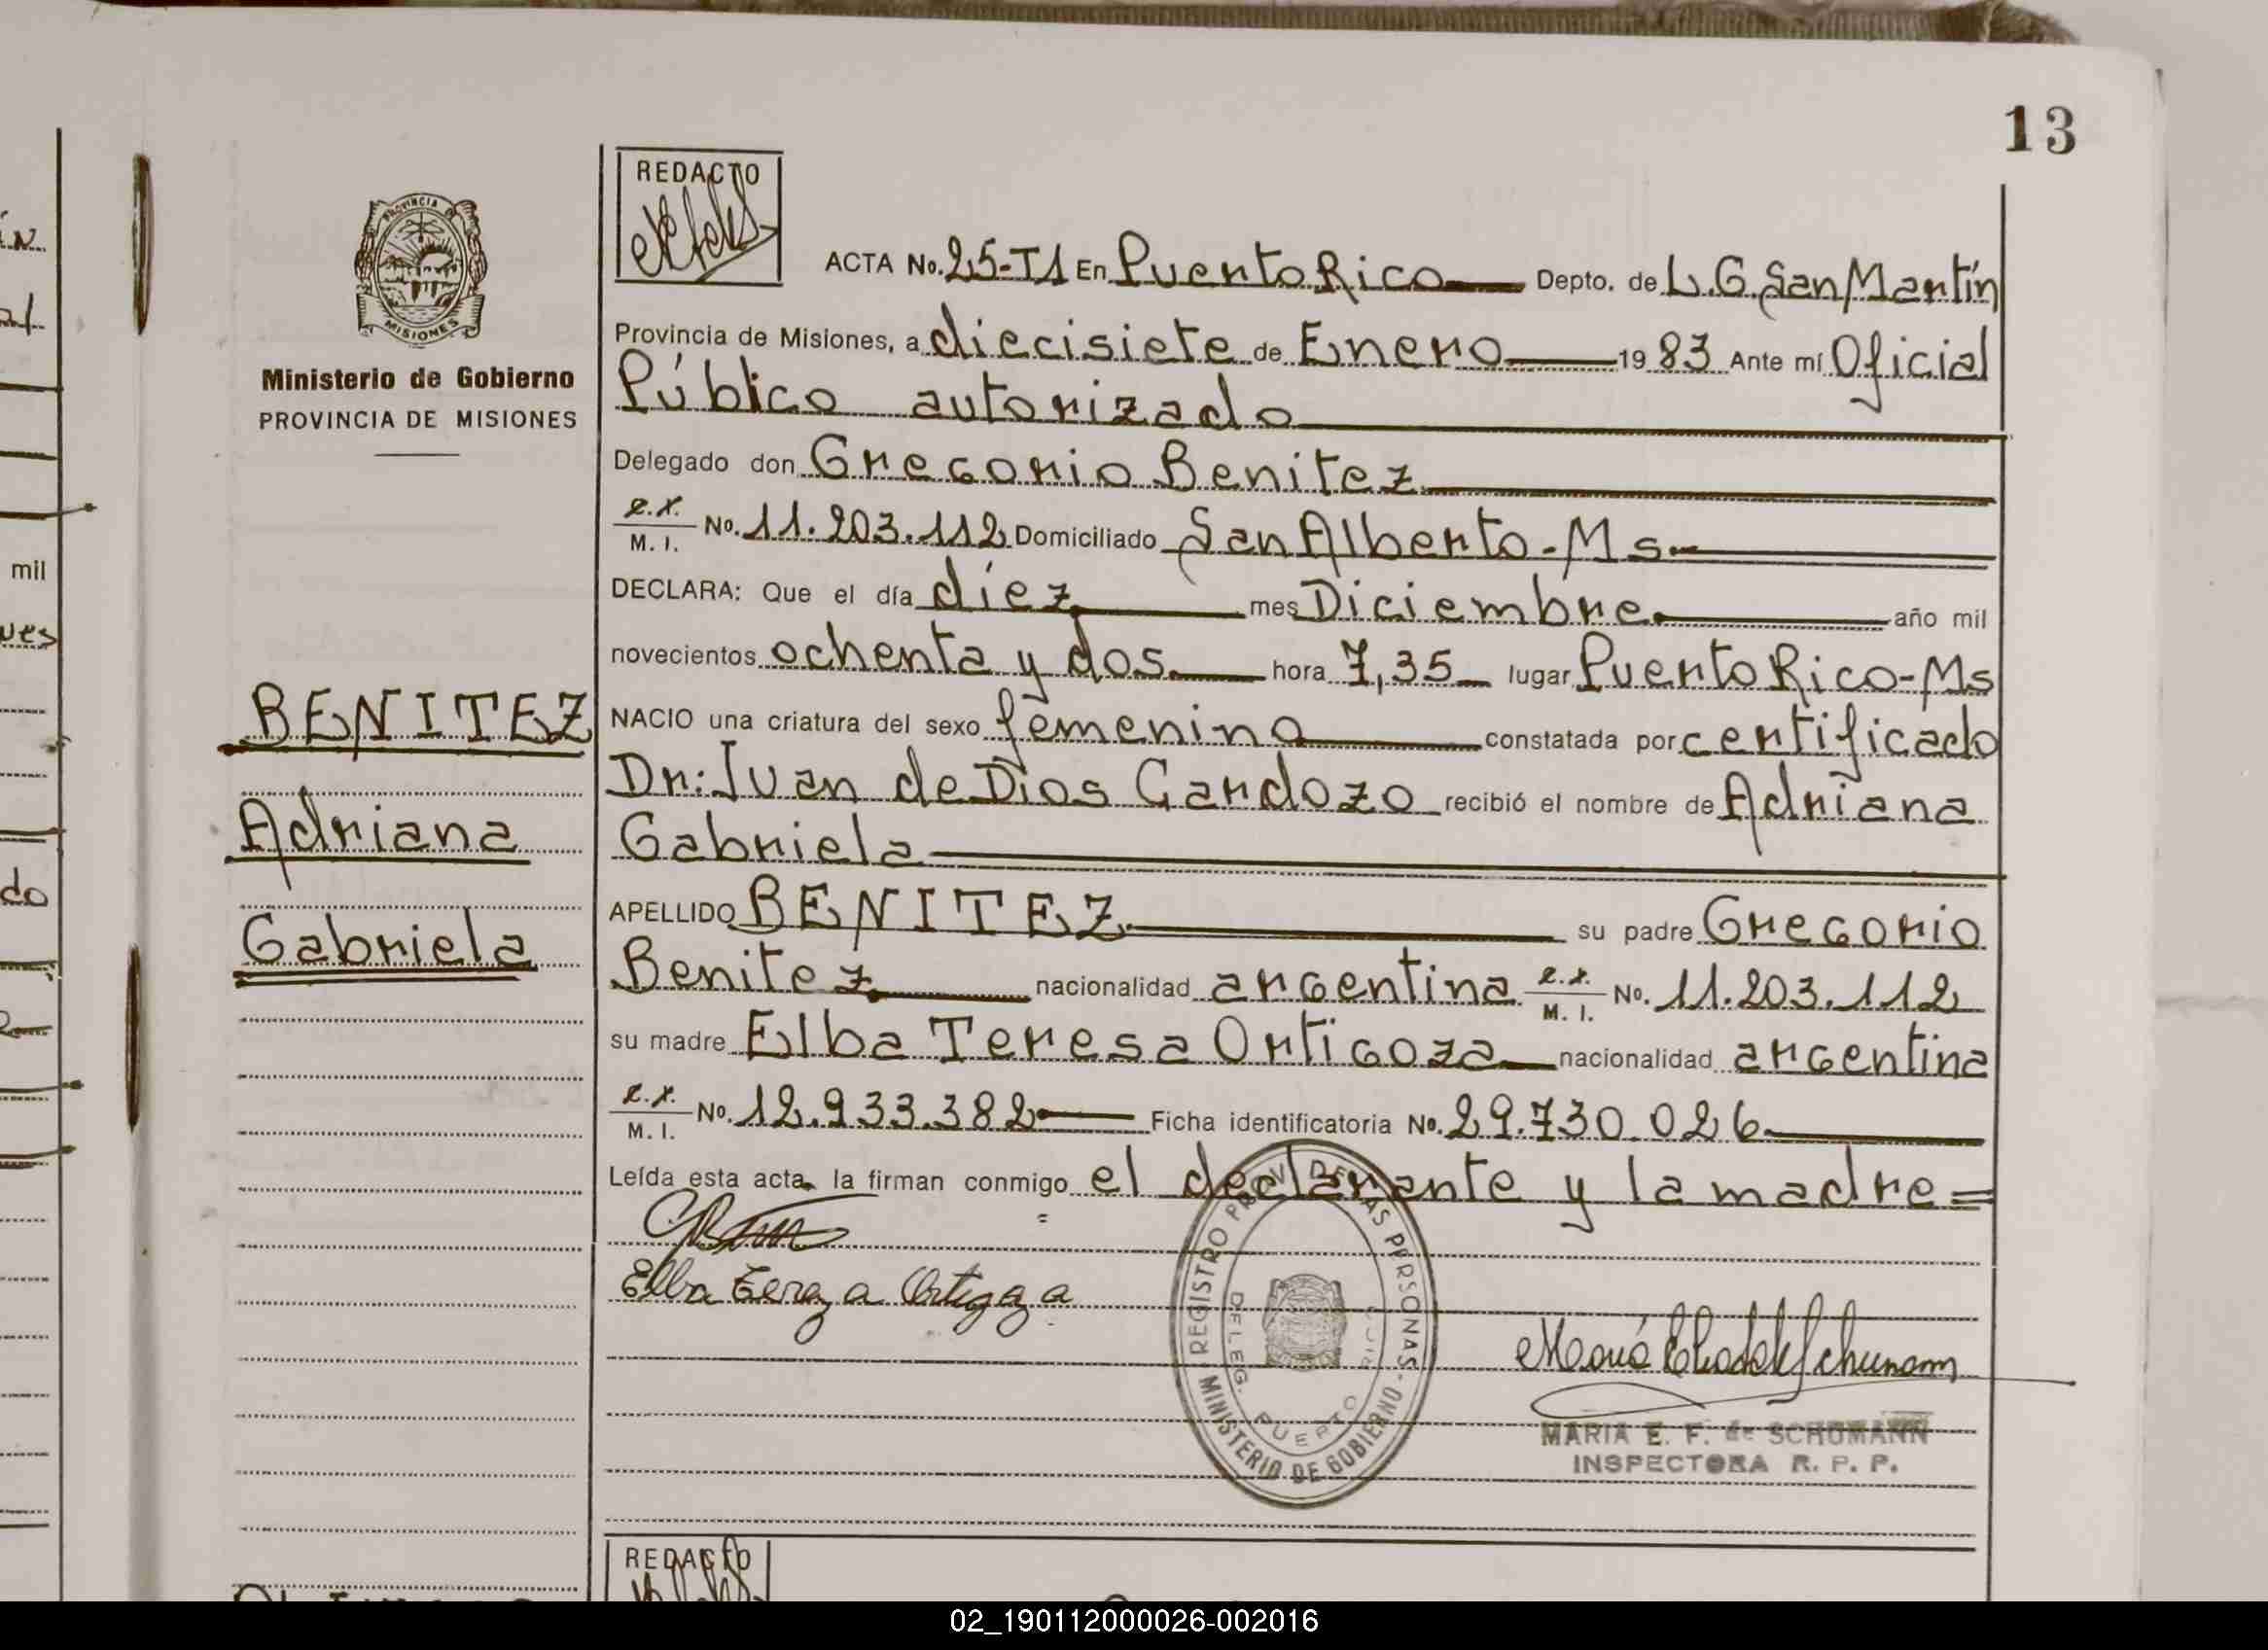 13
REDACTO
PROVINCIA
MISIONES
Ministerio de Gobierno
PROVINCIA DE MISIONES
BENITEZ
Adriana
Gabriela
ACTA No. 25-T1 En Puerto Rico Depto. de L.G. San Martín
Provincia de Misiones, a diecisiete de Enero 1983 Ante mí Oficial
Público autorizado
Delegado don Gregorio Benitez
M. I. No. 11.203.112 Domiciliado San Alberto-Ms-
DECLARA: Que el día diez mes Diciembre año mil
novecientos ochenta y dos hora 7,35 lugar Puerto Rico-Ms
NACIO una criatura del sexo femenino constatada por certificado
Dr: Juan de Dios Cardozo recibió el nombre de Adriana
Gabriela
APELLIDO BENITEZ su padre Gregorio
Benitez nacionalidad argentina M. I. No. 11.203.112
su madre Elba Teresa Ortigoza nacionalidad argentina
M. I. No. 12.933.382 Ficha identificatoria No. 29.730.026
Leída esta acta, la firman conmigo el declarante y la madre=
Elba Tereza Ortigoza
REGISTRO PROV. DE LAS PERSONAS - MINISTERIO DE GOBIERNO -
DELEG. PUERTO RICO
MARIA E. F. de SCHUMANN
INSPECTORA R. P. P.
REDACTO
mil
do
02_190112000026-002016